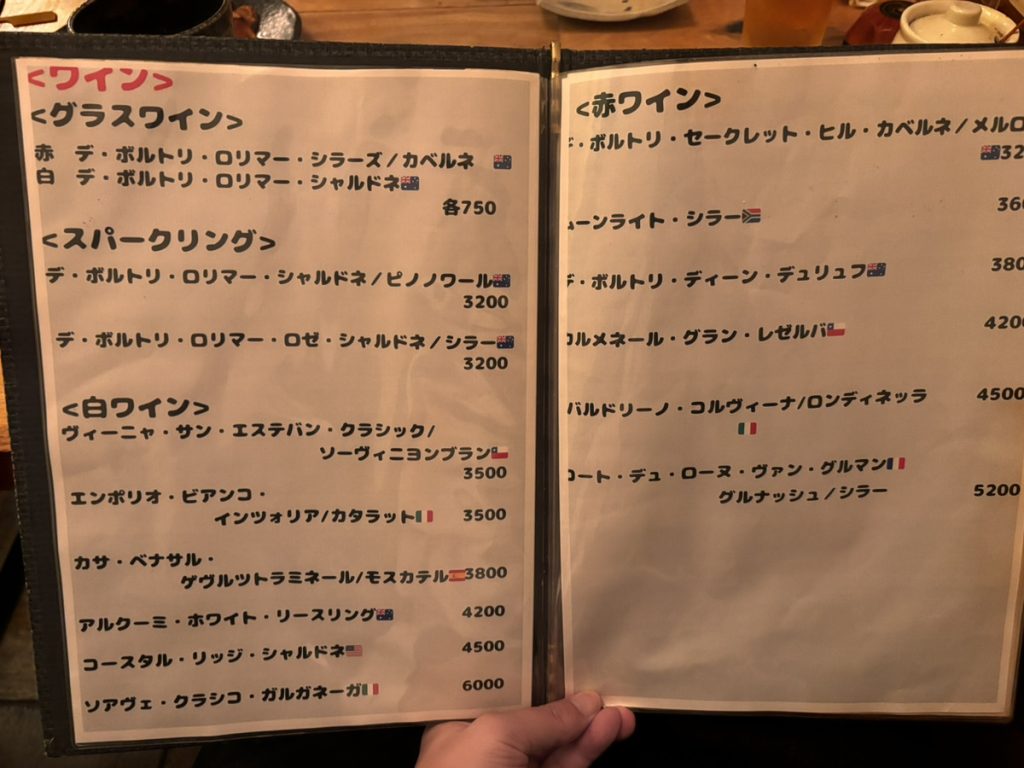 <ワイン>
<グラスワイン>
赤 デ・ボルトリ・ロリマー・シラーズ/カベルネ
白 デ・ボルトリ・ロリマー・シャルドネ
各750
<スパークリング>
デ・ボルトリ・ロリマー・シャルドネ/ピノノワール
3200
デ・ボルトリ・ロリマー・ロゼ・シャルドネ/シラー
3200
<白ワイン>
ヴィーニャ・サン・エステバン・クラシック/
ソーヴィニヨンブラン
3500
エンポリオ・ビアンコ・
インツォリア/カタラット 3500
カサ・ベナサル・
ゲヴルツトラミネール/モスカテル 3800
アルクーミ・ホワイト・リースリング 4200
コースタル・リッジ・シャルドネ 4500
ソアヴェ・クラシコ・ガルガネーガ 6000
<赤ワイン>
・ボルトリ・セークレット・ヒル・カベルネ/メルロ
32
ーンライト・シラー 360
・ボルトリ・ディーン・デュリュフ 380
ルメネール・グラン・レゼルバ 4200
バルドリーノ・コルヴィーナ/ロンディネッラ 4500
ート・デュ・ローヌ・ヴァン・グルマン
グルナッシュ/シラー 5200